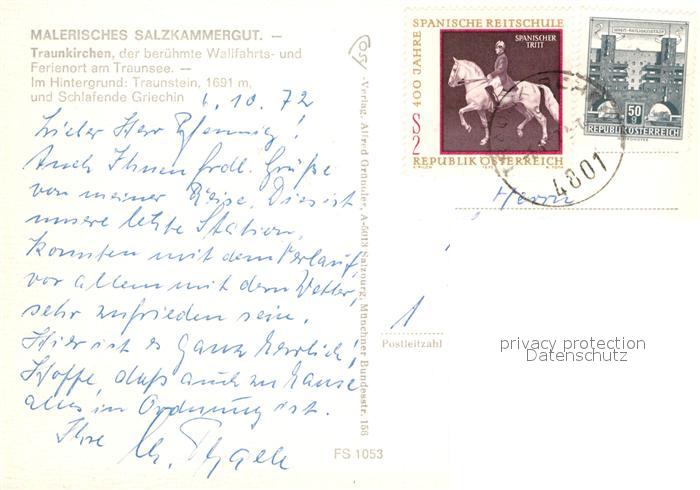 MALERISCHES SALZKAMMERGUT. —
Traunkirchen, der berühmte Wallfahrts- und
Ferienort am Traunsee. —
Im Hintergrund: Traunstein, 1691 m,
und Schlafende Griechin
1.10.72
Lieber Herr Pfennig!
Auch Ihnen frdl. Grüße
von meiner Reise. Dies ist
unsere letzte Station,
konnten mit dem Verlauf,
vor allem mit dem Wetter,
sehr zufrieden sein.
Hier ist es ganz herrlich!
Hoffe, daß auch zu Hause
alles in Ordnung ist.
Ihre
FS 1053
-Verlag, Alfred Gründler, A-5013 Salzburg, Münchner Bundesstr. 156
400 JAHRE SPANISCHE REITSCHULE
SPANISCHER
TRITT
S 2
REPUBLIK ÖSTERREICH
50 g
REPUBLIK ÖSTERREICH
4801
Herrn
1
Postleitzahl
privacy protection
Datenschutz